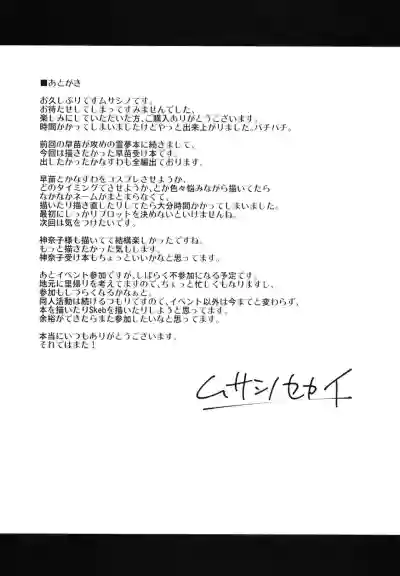 ■あとがき
お久しぶりですムサシノです。
お待たせしてしまってすみませんでした、
楽しみにしていただいた方、ご購入ありがとうございます。
時間かかってしまいましたけどやっと出来上がりました。パチパチ。
前回の早苗が攻めの霊夢本に続きまして、
今回は描きたかった早苗受け本です。
出したかったかなすわも全編出ております。
早苗とかなすわをコスプレさせようか、
どのタイミングでさせようか、とか色々悩みながら描いてたら
なかなかネームがまとまらなくて、
描いたり描き直したりしてたら大分時間かかってしまいました。
最初にしっかりプロットを決めないといけませんね。
次回は気をつけたいです。
神奈子様も描いてて結構楽しかったですね。
もっと描きたかった気もします。
神奈子受け本もちょっといいかなと思ってます。
あとイベント参加ですが、しばらく不参加になる予定です。
地元に里帰りを考えてますので、ちょっと忙しくもなりますし、
参加もしづらくなるかなぁと。
同人活動は続けるつもりですので、イベント以外は今までと変わらず、
本を描いたりSkebを描いたりしようと思ってます。
余裕ができたらまた参加したいなと思ってます。
本当にいつもありがとうございます。
それではまた!
ムサシノセカイ